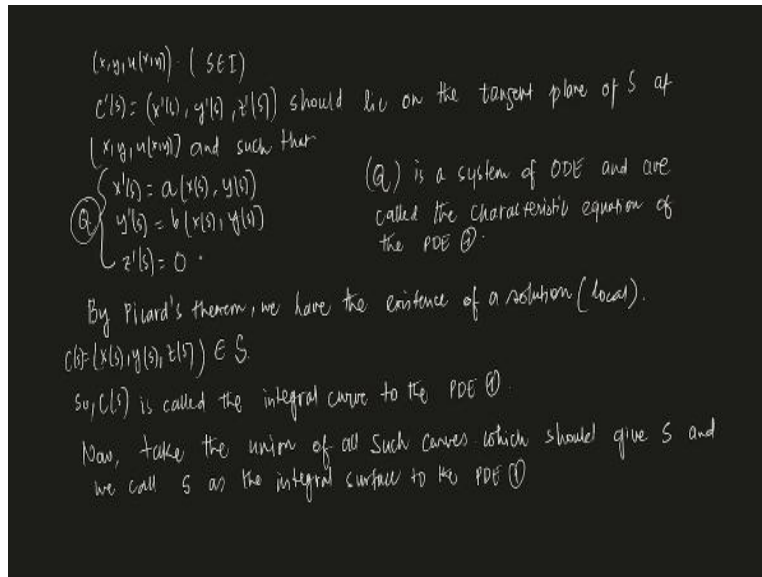 (x,y,u(x,y)). (S∈I)
C'(s) = (x'(s), y'(s), z'(s)) should lie on the tangent plane of S at
(x,y,u(x,y)) and such that
x'(s) = a(x(s), y(s))
Q y'(s) = b(x(s), y(s))
z'(s) = 0.
(Q) is a system of ODE and are
called the characteristic equation of
the PDE
By Picard's therem, we have the existence of a solution (local).
C(s) = (x(s), y(s), z(s)) ∈ S.
So, C(s) is called the integral curve to the PDE ①.
Now, take the union of all such curves which should give S and
we call S as the integral surface to the PDE ①